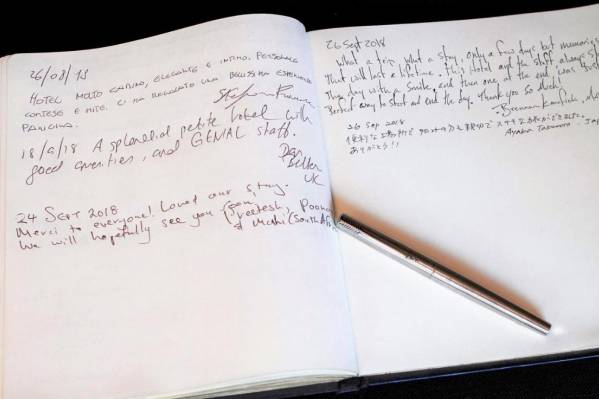 26/08/18
HOTEL MOLTO CARINO, ELEGANTE E INTIMO. PERSONALE
CORTESE E MITE. CI HA REGALATO UNA BELLISSIMA ESPERIENZA
PARIGINA.
18/9/18 A splendid petite hotel with
good amenities, and GENIAL staff.
Dan
UK
24 SEPT 2018
Merci to everyone! Loved our stay.
We will hopefully see you soon,
Preetesh, Poonam
& Mahi (South Afri
26 Sept 2018
What a trip, what a stay, only a few days but memories
that will last a lifetime. This hotel and the staff always
day with a smile, and then one at the end, was just
Perfect way to start and end the day. Thank you so much!
Brennan
26 Sep. 2018
便利な場所で
ありがとう!!
Ayaka